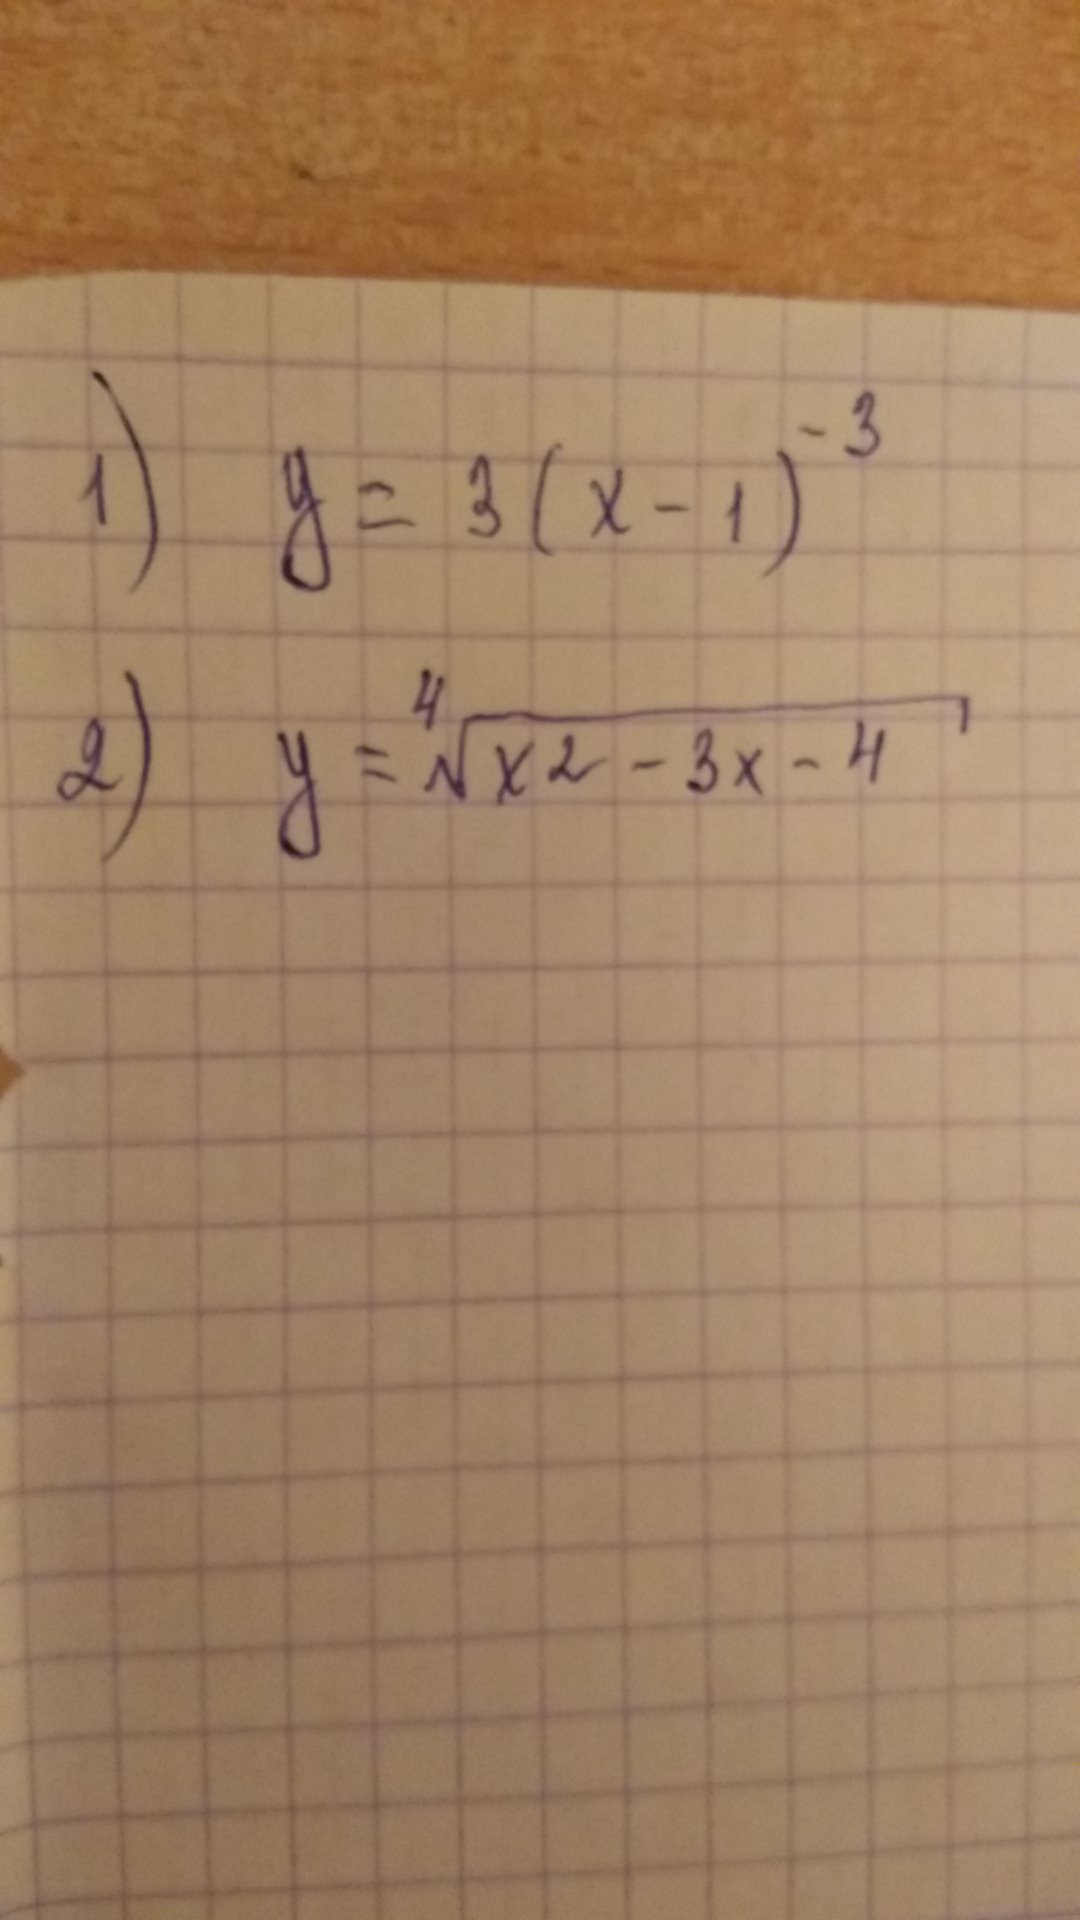 1) y = 3(x - 1)⁻³
2) y = ⁴√x2 - 3x - 4